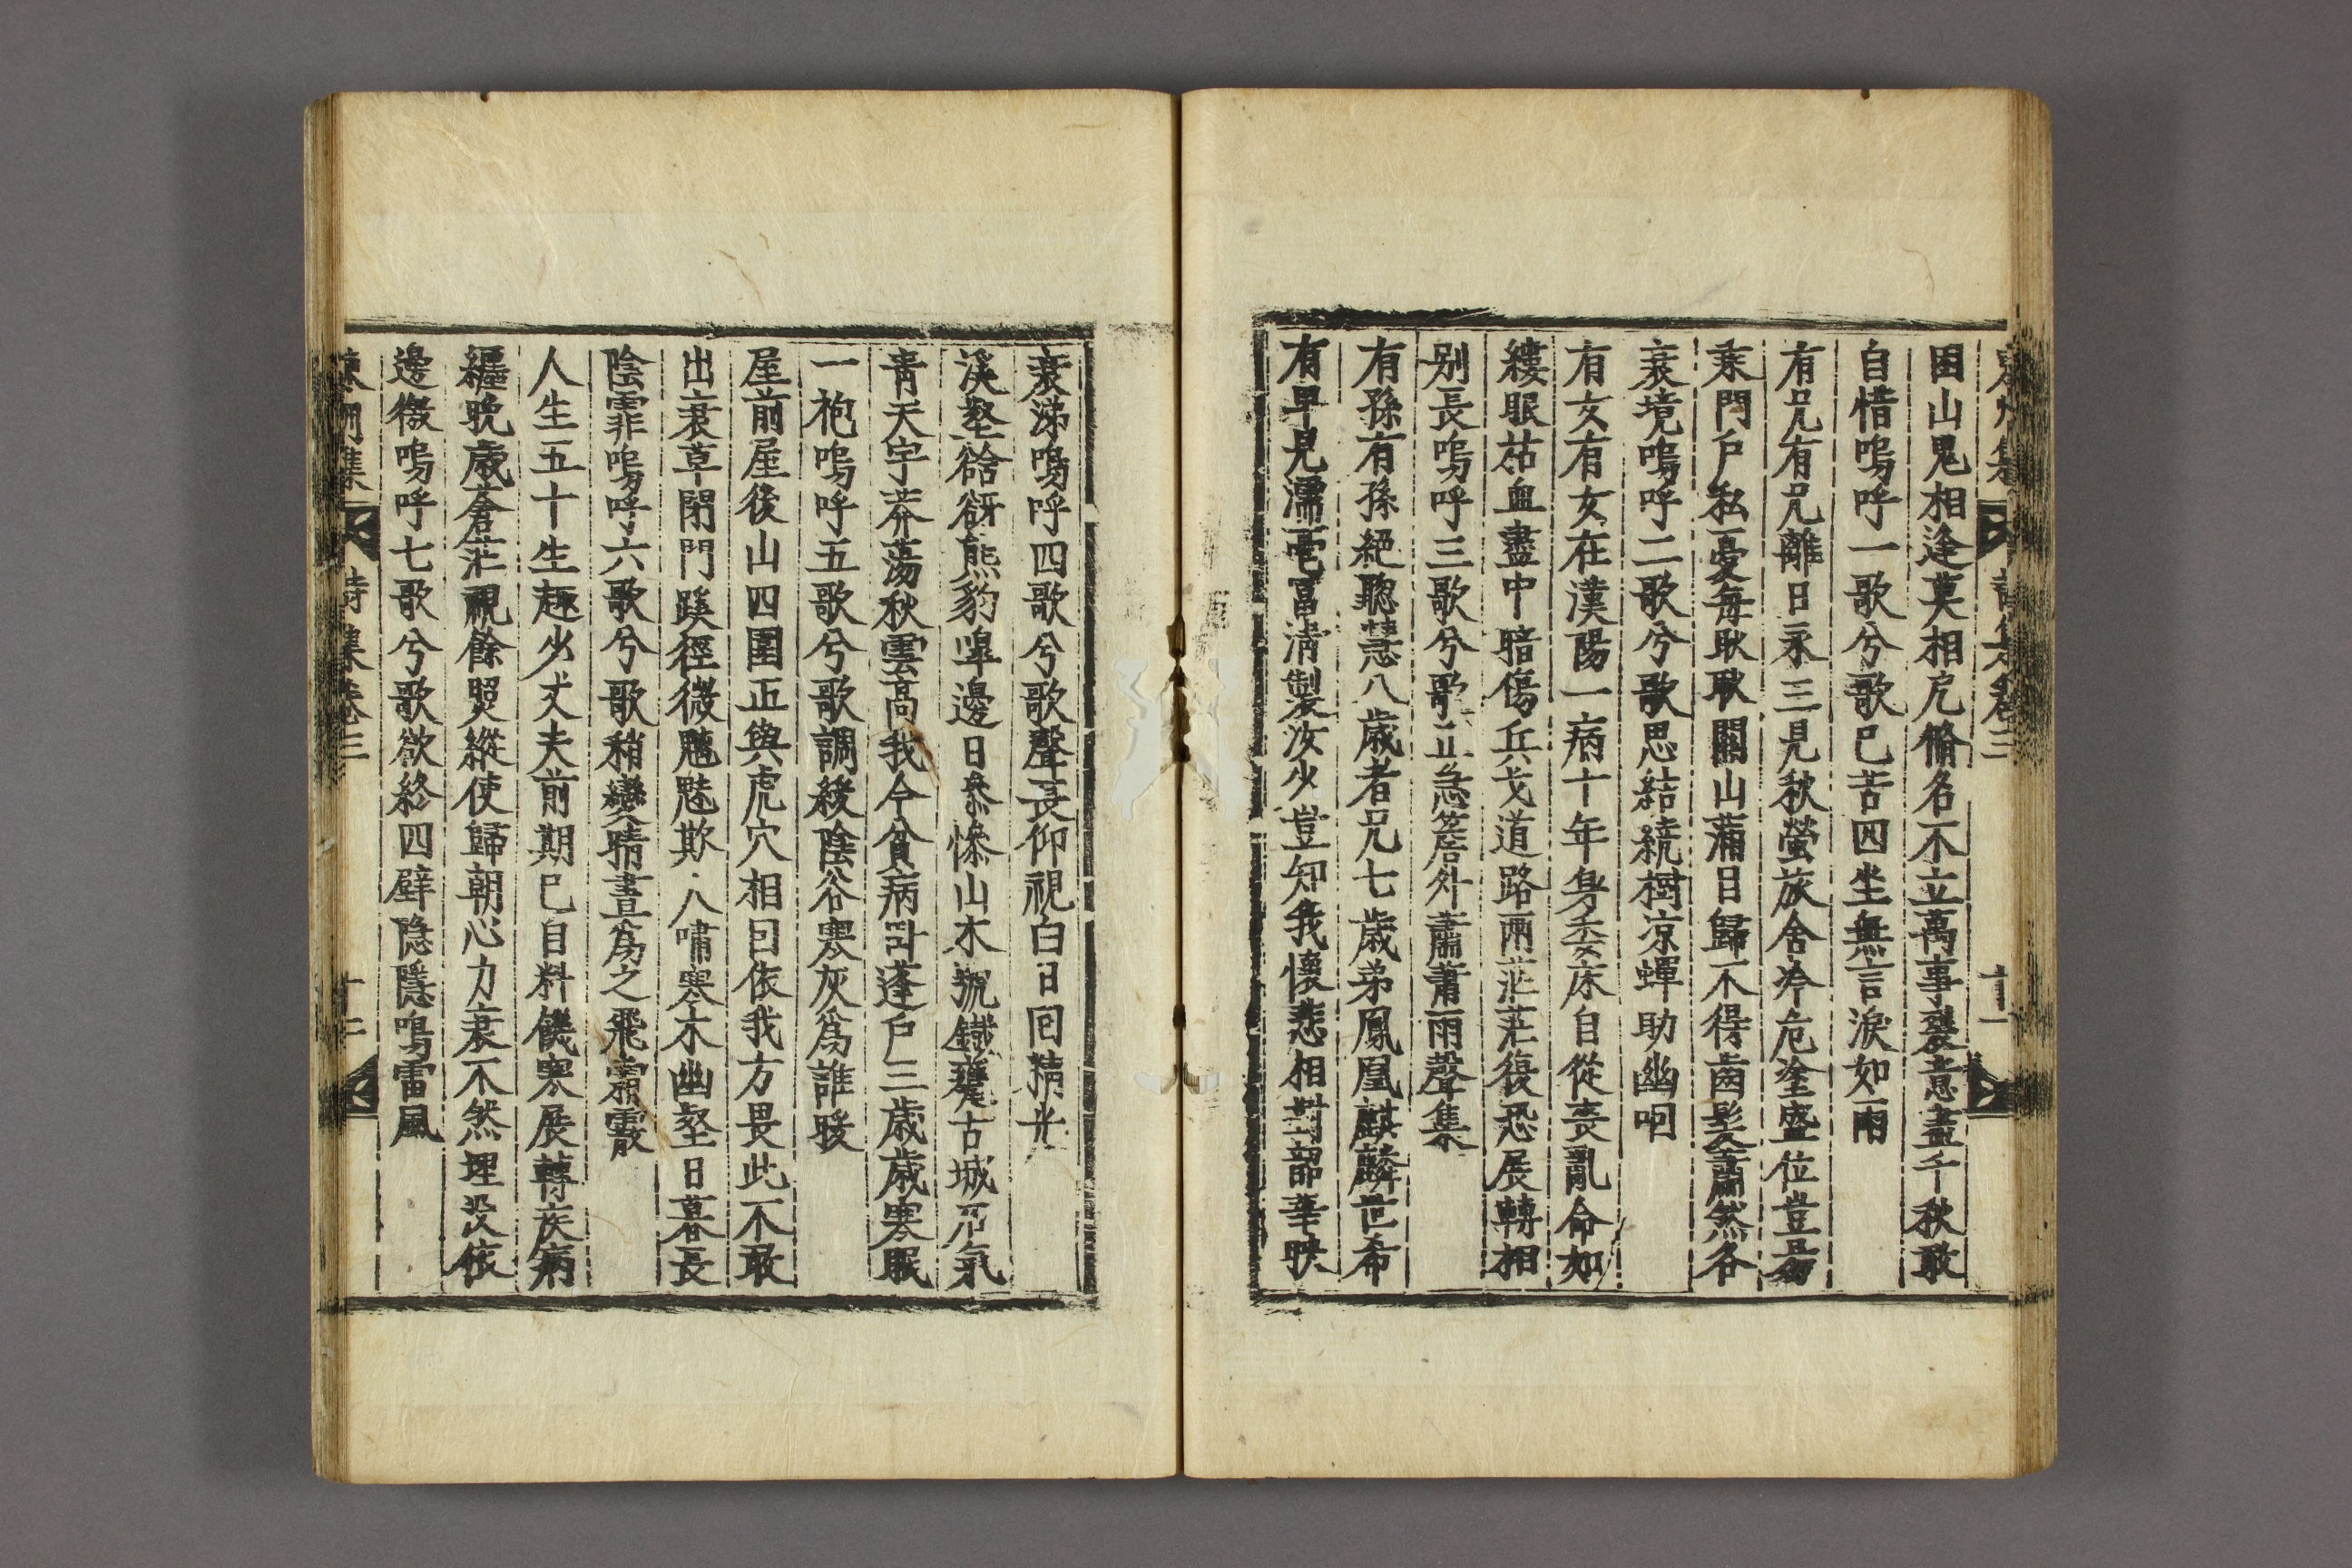 困山鬼相逢莫相尤脩名不立萬事裂意盡千秋敢
自惜嗚呼一歌兮歌已苦四坐無言淚如雨
有兄有兄離日永三見秋螢旅舍冷危塗盛位豈易
乘門戶私憂每耿耿關山滿目歸不得齒髮蕭然各
衰境嗚呼二歌兮歌思結繞樹凉蟬助幽咽
有女有女在漢陽一病十年身委床自從喪亂命如
縷眼枯血盡中暗傷兵戈道路兩茫茫復恐展轉相
别長嗚呼三歌兮歌正急簷外蕭蕭雨聲集
有孫有孫絕聰慧八歲者兄七歲弟鳳凰麒麟世希
有早見濡毫富清製汝少豈知我懷悲相對韶華映
衰涕嗚呼四歌兮歌聲長仰視白日回精光
溪壑谽谺熊豹嘷邊日慘慘山木號鐵甕古城朔氣
靑天宇莽蕩秋雲高我今貧病卧蓬戶三歲歲寒眠
一袍嗚呼五歌兮歌調緩陰谷寒灰爲誰暖
屋前屋後山四圍正與虎穴相因依我方畏此不敢
出衰草閉門蹊徑微魑魅欺人嘯寒木幽壑日暮長
陰霏嗚呼六歌兮歌稍變晴晝爲之飛霜霰
人生五十生趣少丈夫前期已自料饑寒展轉疾病
纏晚歲蒼茫視餘照縱使歸朝心力衰不然埋沒依
邊徼嗚呼七歌兮歌欲終四壁隱隱鳴雷風
詩集卷三
十二